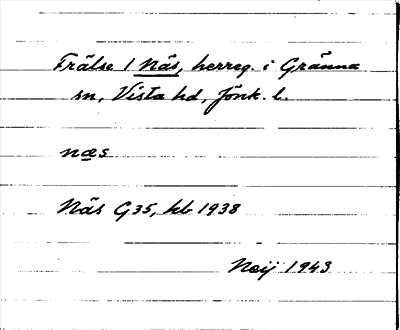 Frälse 1 Näs, herreg. i Gränna
sn, Vista hd, Jönk. l.
næs
Näs G35, kb 1938
Noij 1943